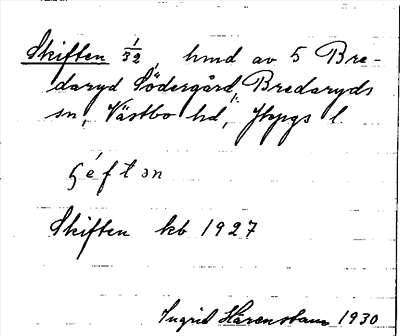 Skiften 1/32, hmd av 5 Bre-
daryd Södergård, Bredaryds
sn, Västbo hd, Jkpgs l.
ʃéftən
Skiften kb 1927
Ingrid Härenstam 1930